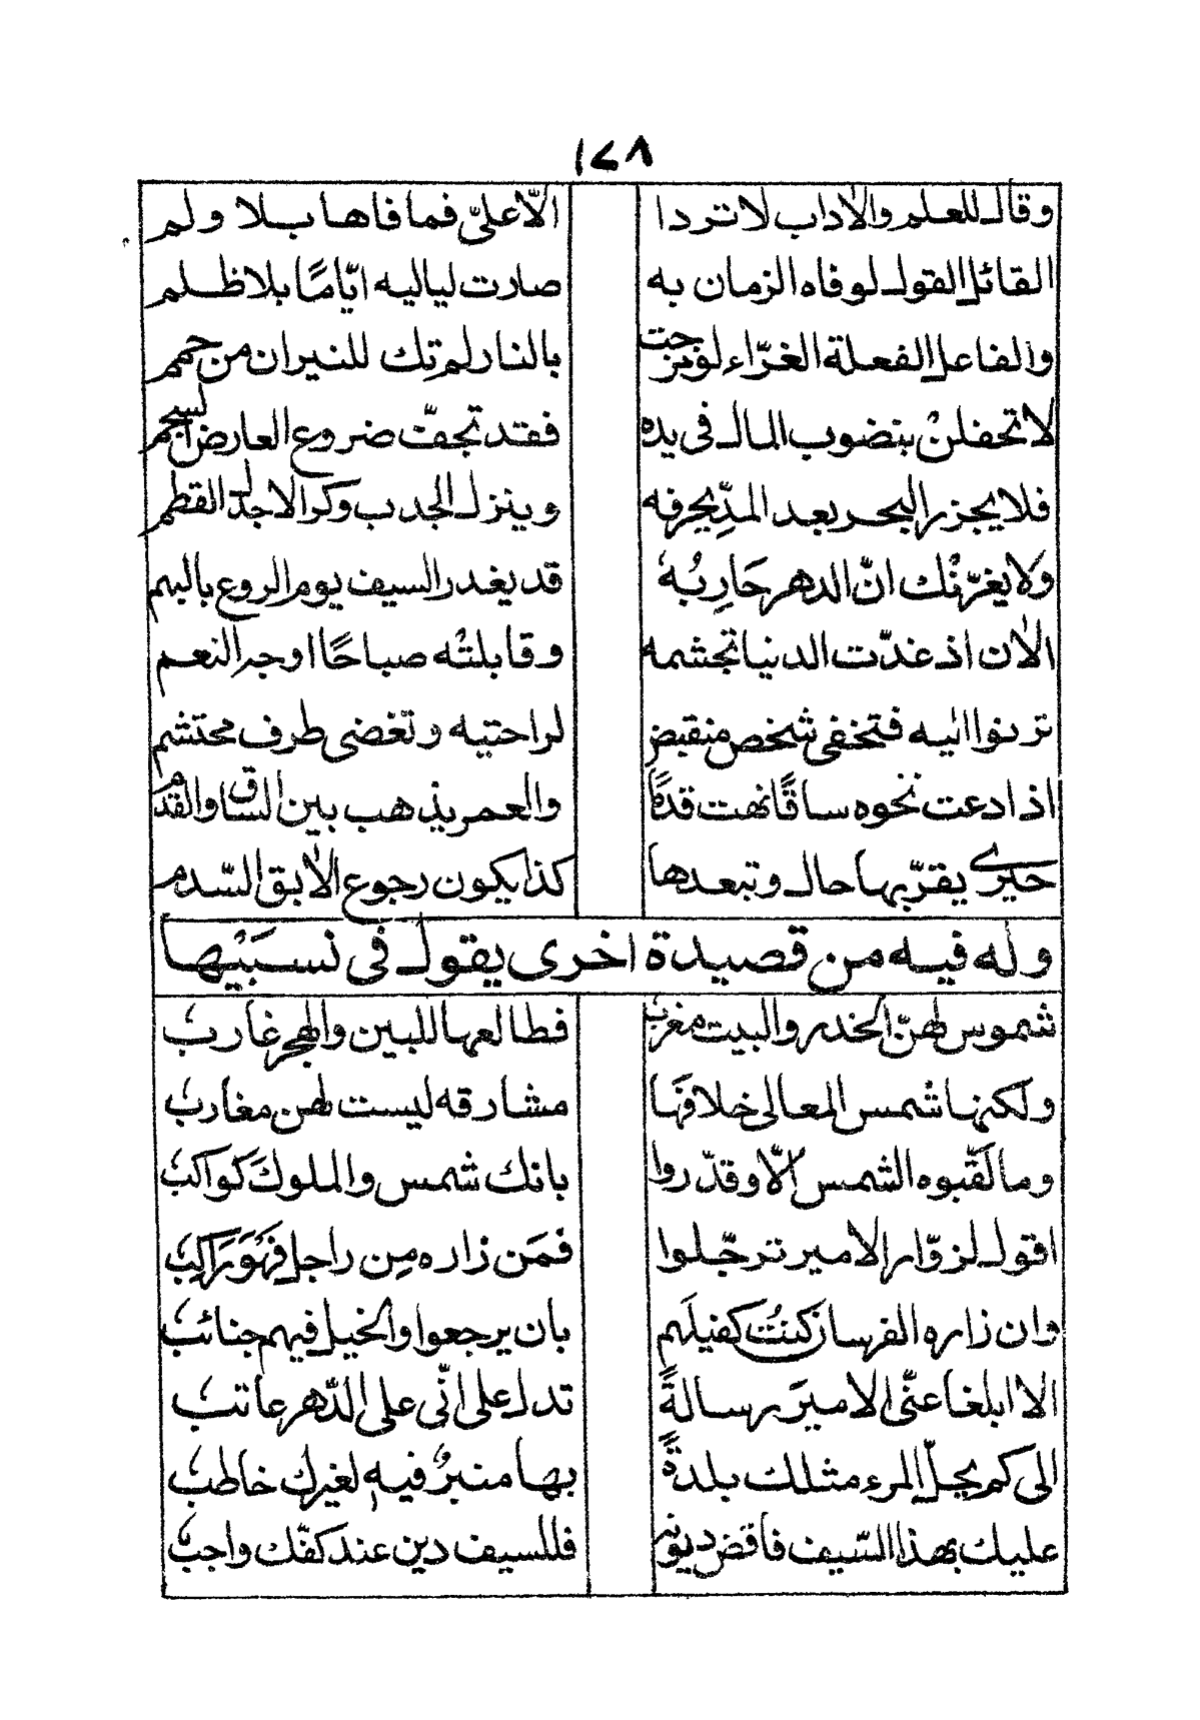 ١٧٨
وقال للعلم والاٰداب لا تردا الّا علىّ فما فاها بلا ولم
القائل القول لو فاه الزمان به صارت لياليه ايّامًا بلا ظلم
والفاعل الفعلة الغرّاء لو مزجت بالنار لم تك للنيران من حمم
لا تحفلنْ بنضوب المال فى يده فقد تجفّ ضروع العارض السجم
فلا يجزر البحر بعد المدِّ يحرفه وينزل الجدب وكر الاجدل القطم
ولا يغرّنْك انّ الدهر حَارِبُهُ قد يغدر السيف يوم الروع بالبهم
الاٰن اذ غدّت الدنيا تجشمه وقابلتْه صباحًا اوجه النعم
ترنوا اليه فتخفى شخص منقبض لراحتيه وتّغضى طرف محتشم
اذا دعت نحوه ساقًا نهت قدمًا والعمر يذهب بين الساق والقدم
حَيْرى يقرّبها حال وتبعدها كذا يكون رجوع الاٰبق السّدم
وله فيه من قصيدة اخرى يقول فى نسَبَيْها
شموس لهنّ الخدر والبيت مغربُ فطالعها للبين والهجر غاربُ
ولكنها شمس المعالى خلافهَا مشارقه ليست لهن مغاربُ
وما لَقّبوه الشمس الّا وقدّروا بانك شمس والملوكَ كواكبُ
اقول لزوّار الامير ترجّلوا فمَن زاره مِن راجل فهَوَ رَاكِبُ
وان زاره الفرسان كنتُ كفيلَهم بان يرجعوا والخيل فيهم جنائبُ
الا ابلغا عنّى الاميرَ رسالةً تدل على انّى على الدّهر عاتبُ
الى كم يحلّ المرء مثلك بلدةً بها منبرٌ فيه لغيرك خاطبُ
عليك بهذا السّيف فاقض ديونه فللسيف دين عند كفّك واجبُ